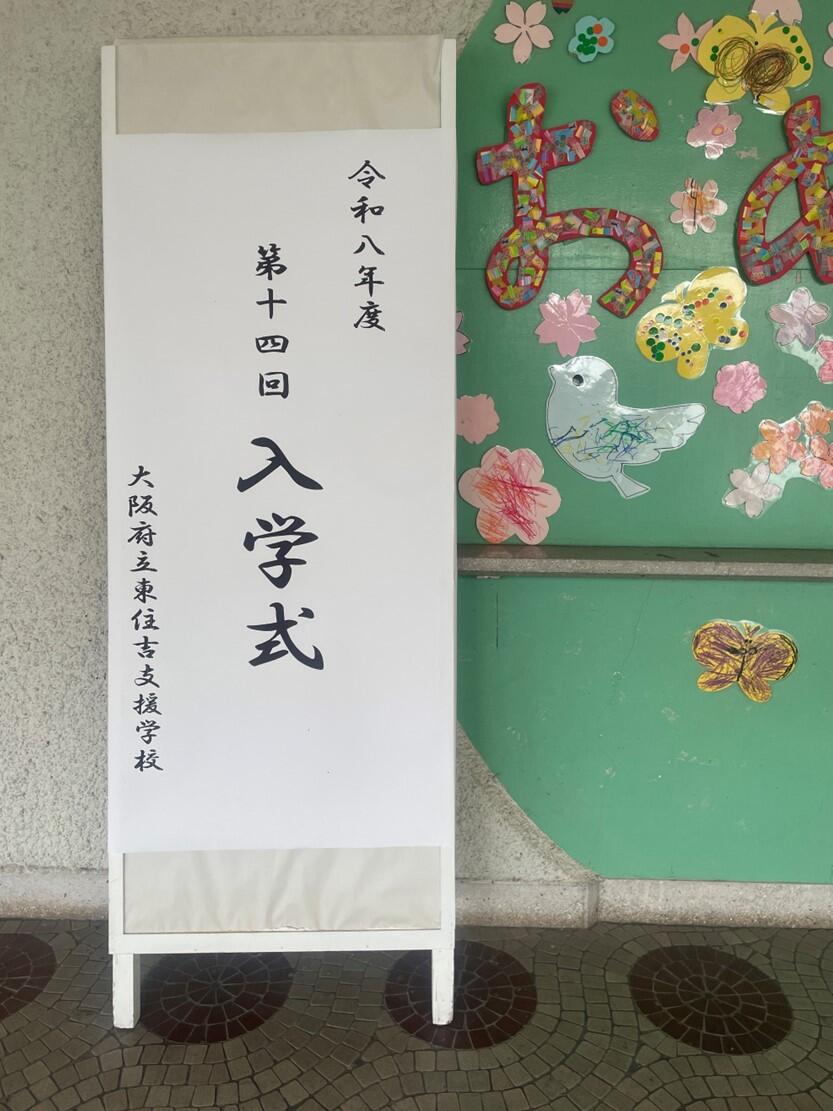 令和八年度
第十四回 入学式
大阪府立東住吉支援学校
お